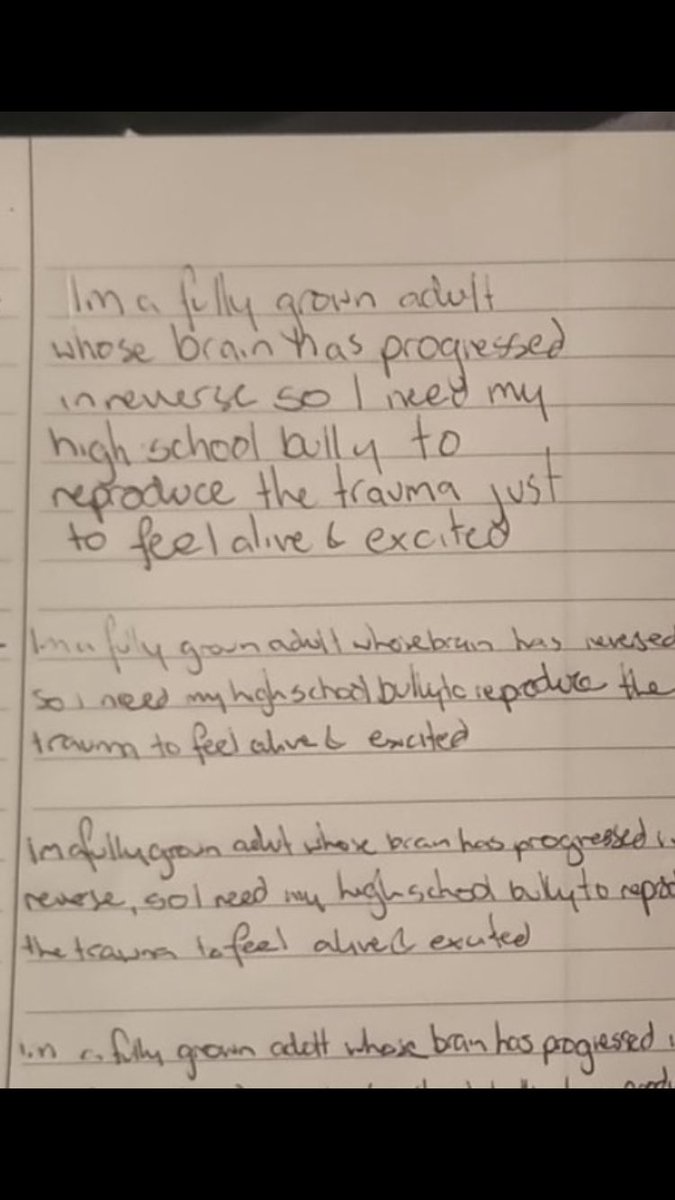 I'm a fully grown adult
whose brain has progressed
in reverse so I need my
high school bully to
reproduce the trauma just
to feel alive & excited
I'm a fully grown adult whose brain has reversed
so i need my high school bully to reproduce the
trauma to feel alive & excited
I'm a fully grown adult whose brain has progressed i
reverse, so I need my high school bully to repro
the trauma to feel alive & excited
I'm a fully grown adult whose brain has progressed i